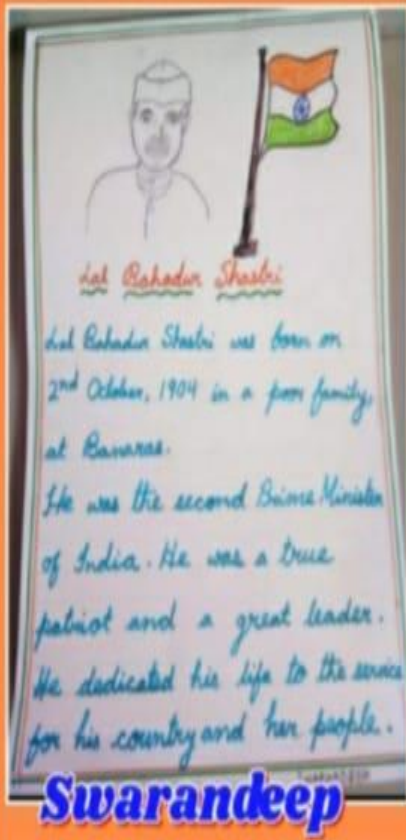 Lal Bahadur Shastri
Lal Bahadur Shastri was born on
2nd October, 1904 in a poor family,
at Banaras.
He was the second Prime Minister
of India. He was a true
patriot and a great leader.
He dedicated his life to the service
for his country and her people.
Swarandeep